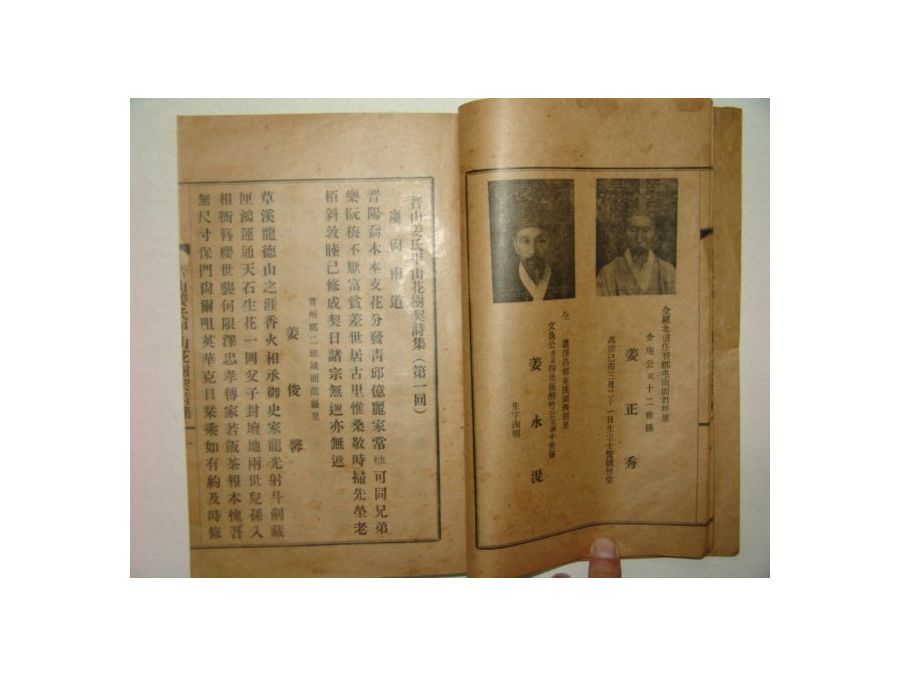 全羅北道任實郡屯南面若坪里
介庵公 十二世孫
姜正秀
高宗己卯三月二十一日生字士賢號竹堂
仝 道淳昌郡東溪面
姜永湜
生字洵明
晋山姜氏 山花樹契詩集(第一回)
慶尙南道
晋陽喬木本支花分發靑邱億麗家常棣可同兄弟
樂阮梅不厭富貧差世居古里惟桑敬時掃先塋老
栢斜敦睦已修成契日諸宗無遐亦無遮
晋州郡二班城面龍巖里
姜俊馨
草溪龍德山之涯香火相承御史家龍光射斗劍藏
匣鴻運通天石生花一閣父子封壇地兩世兒孫入
相衙簪纓世襲何限澤忠孝傳家若飯茶報本愧吾
無尺寸保門尙爾咀英華克日槩乘如有約及時修